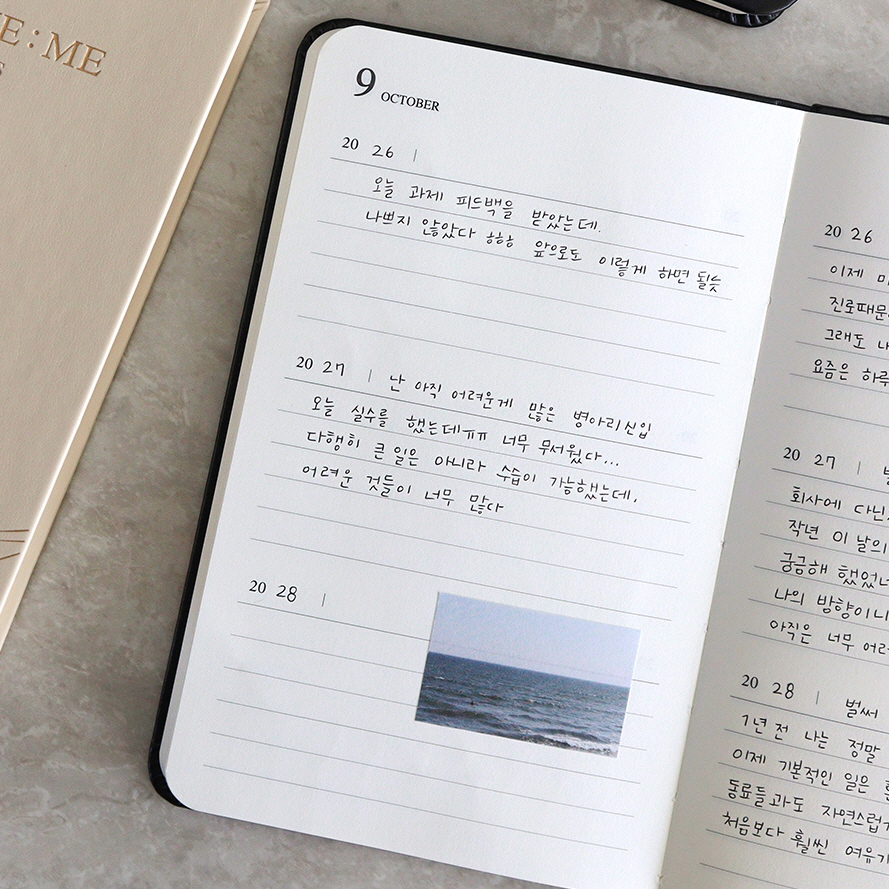 E:ME
S
9 OCTOBER
20 26 |
오늘 과제 피드백을 받았는데.
나쁘지 않았다 ㅎㅎㅎ 앞으로도 이렇게 하면 될듯
20 27 | 난 아직 어려운게 많은 병아리신입
오늘 실수를 했는데ㅠㅠ 너무 무서웠다...
다행히 큰 일은 아니라 수습이 가능했는데,
어려운 것들이 너무 많다
20 28 |
20 26
이제
진로때문
그래도 내
요즘은 하루
20 27 |
회사에 다닌
작년 이 날의
궁금해 했었
나의 방향이니
아직은 너무 어려
20 28 | 벌써
1년 전 나는 정말
이제 기본적인 일은
동료들과도 자연스럽
처음보다 훨씬 여유